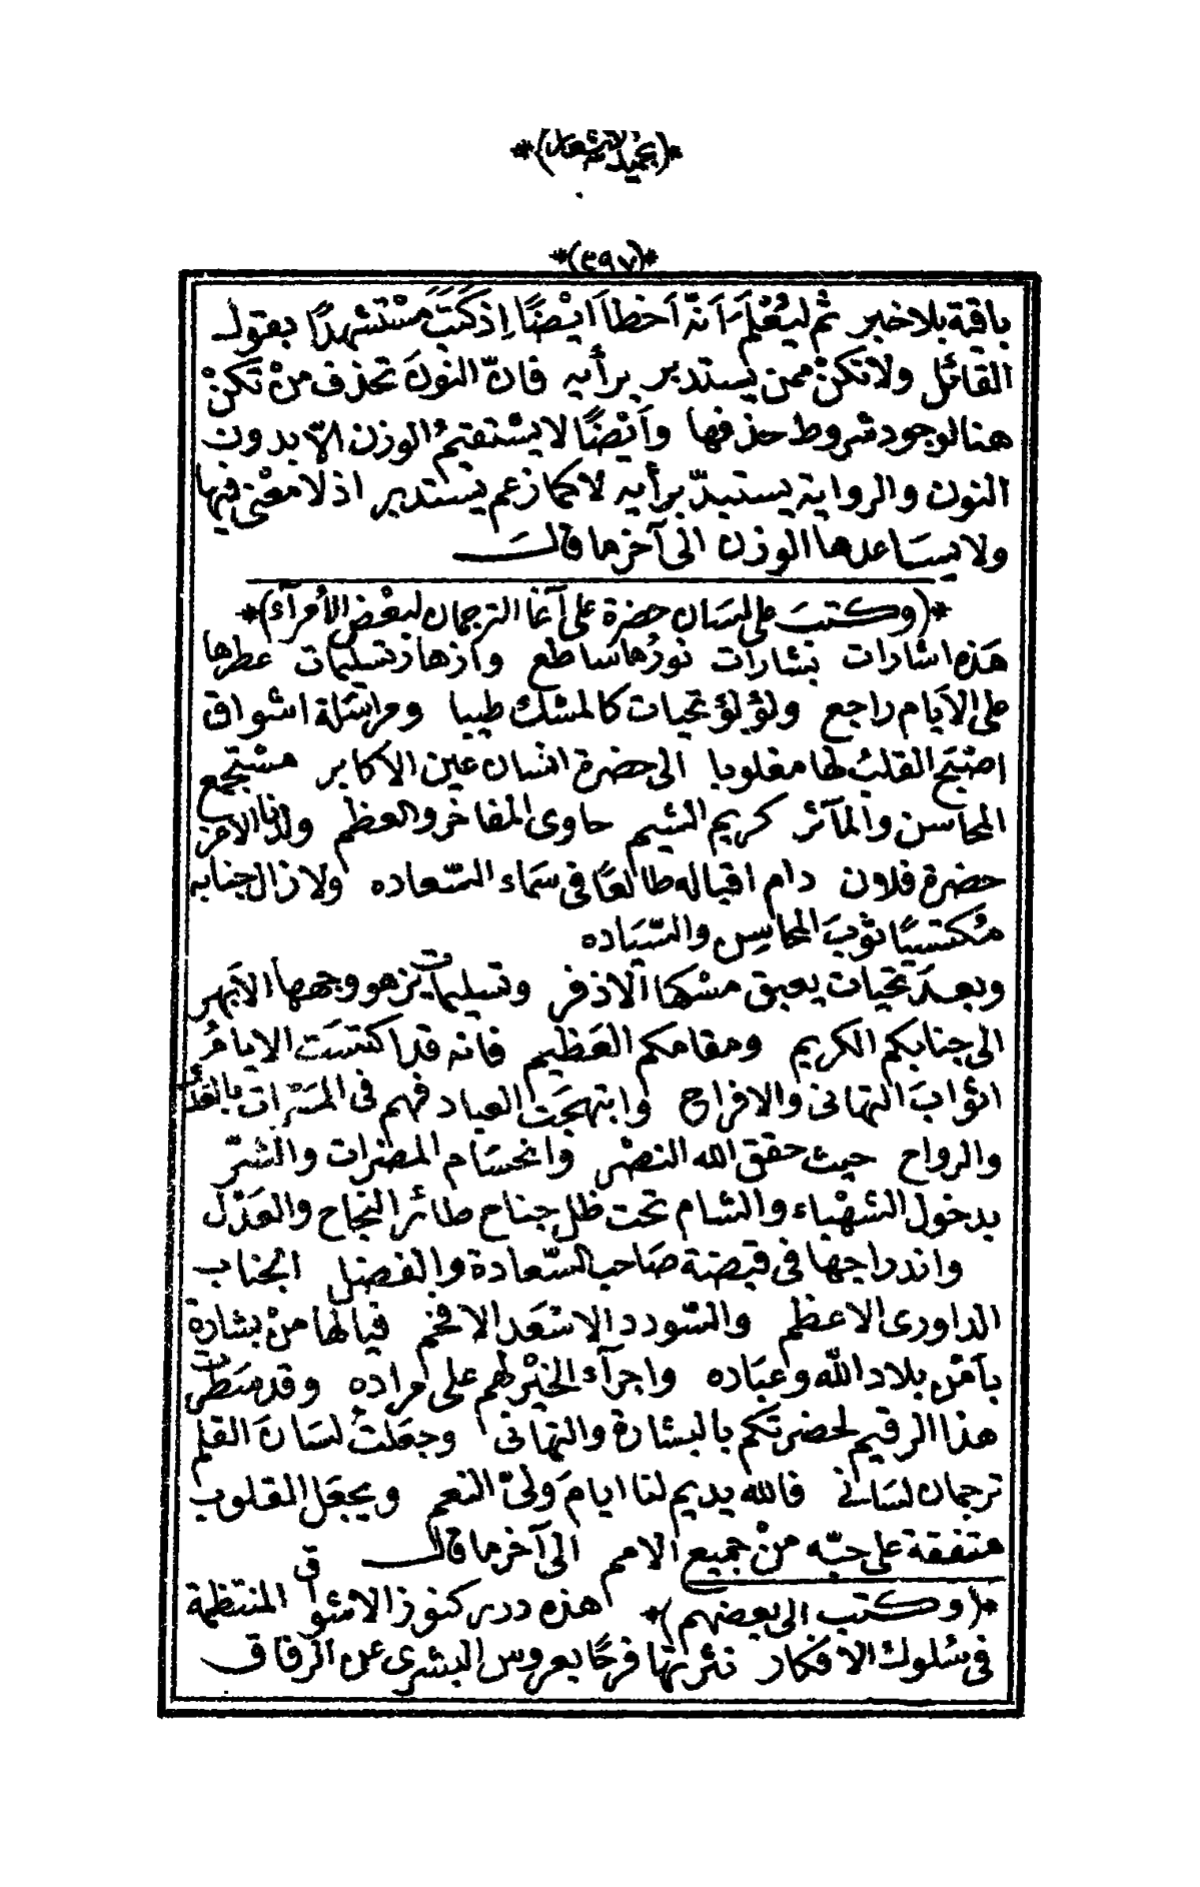 *(٣٩٧)*
باقية بلا خبر ثم ليُعْلَمَ اَنّه اَخطاَ ايْضًا اِذ كَتَبَ مسْتشهِدًا بقول
القائل ولا تكنْ ممن يستدبر برأيه فانّ النونَ تحذف منْ تكنْ
هنا لوجود شروط حذفها وَايْضًا لا يسْتقيمُ الوزن الّا بدون
النون والرواية يستبدّ برأيه لا كما زعم يستدبر اذ لا معْنى فيها
ولا يسَاعدها الوزن الى آخر ما قالــَـ
*(وكتبَ على لسَان حضرة على آغا الترجمان لبعْض الأمرآء)*
هَذه اشارات بشارات نورُها سَاطع وازهار تسليمات عطرها
على الاَيام راجع ولؤلؤ تحيات كالمسْك طيبا ومراسَلة اشواق
اصْبَح القلبُ لها مغلوبا الى حضرة انسان عين الاكابر مستجمع
المحاسن والمآثر كريم الشيم حاوى المفاخر والعظم ولدنا الاعز
حضرة فلان دام اقباله طالعًا فى سَماء السّعاده ولا زال جنابه
مُكتسيًا ثوبَ المحاسِن والسّيَاده
وبعدَ تحيات يعبق مسْكها الاذفر وتسليمات يزهو وجهها الاَبهر
الى جنابكم الكريم ومقامكم العَظيم فانه قد اكتسَت الايامُ
اثوابَ التهانى والافراح وابتهجَت العباد فهم فى المسَرّات بالغدُوّ
والرواح حيث حقق الله النصْر وانحسَام المضرات والشرّ
بدخول الشهْباء والشام تحت ظل جناح طائر النجاح والعَدْل
واندراجها فى قبضة صَاحب السّعادة والفضل الجناب
الداورى الاعظم والسّودد الاسْعَد الافخم فيا لها منْ بشارة
بأمْن بلاد الله وعبَاده واجرآء الخيْر لهم على مراده وقد سَطرت
هذا الرقيم لحضرتكم بالبشارة والتهانى وجعَلتُ لسَان القلم
ترجمان لسَانى فالله يديم لنا ايامَ ولىّ النعم ويجعَل القلوب
متفقة على حبّه منْ جميع الامم الى آخر ما قالــ
*(وكتب الى بعضهم)* هذه درر كنوز الاشواق المنتظمة
فى سُلوك الافكار نثرتها فرحًا بعروس البشرى عن الرفاق